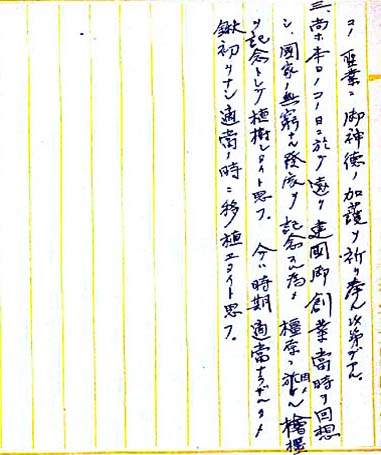 コノ聖業ニ御神徳ノ加護ヲ祈リ奉ル次第デアル。
三、尚ホ本日ノコノ日ニ於テ遠ク建國御創業當時ヲ回想
シ、國家ノ無窮ナル發展ヲ記念スル為メ橿原ニ
ヲ記念トシテ植樹シタイト思フ。今ハ時期適當ナラザルタメ
鍬初ヲナシ適當ノ時ニ移植エタイト思フ。